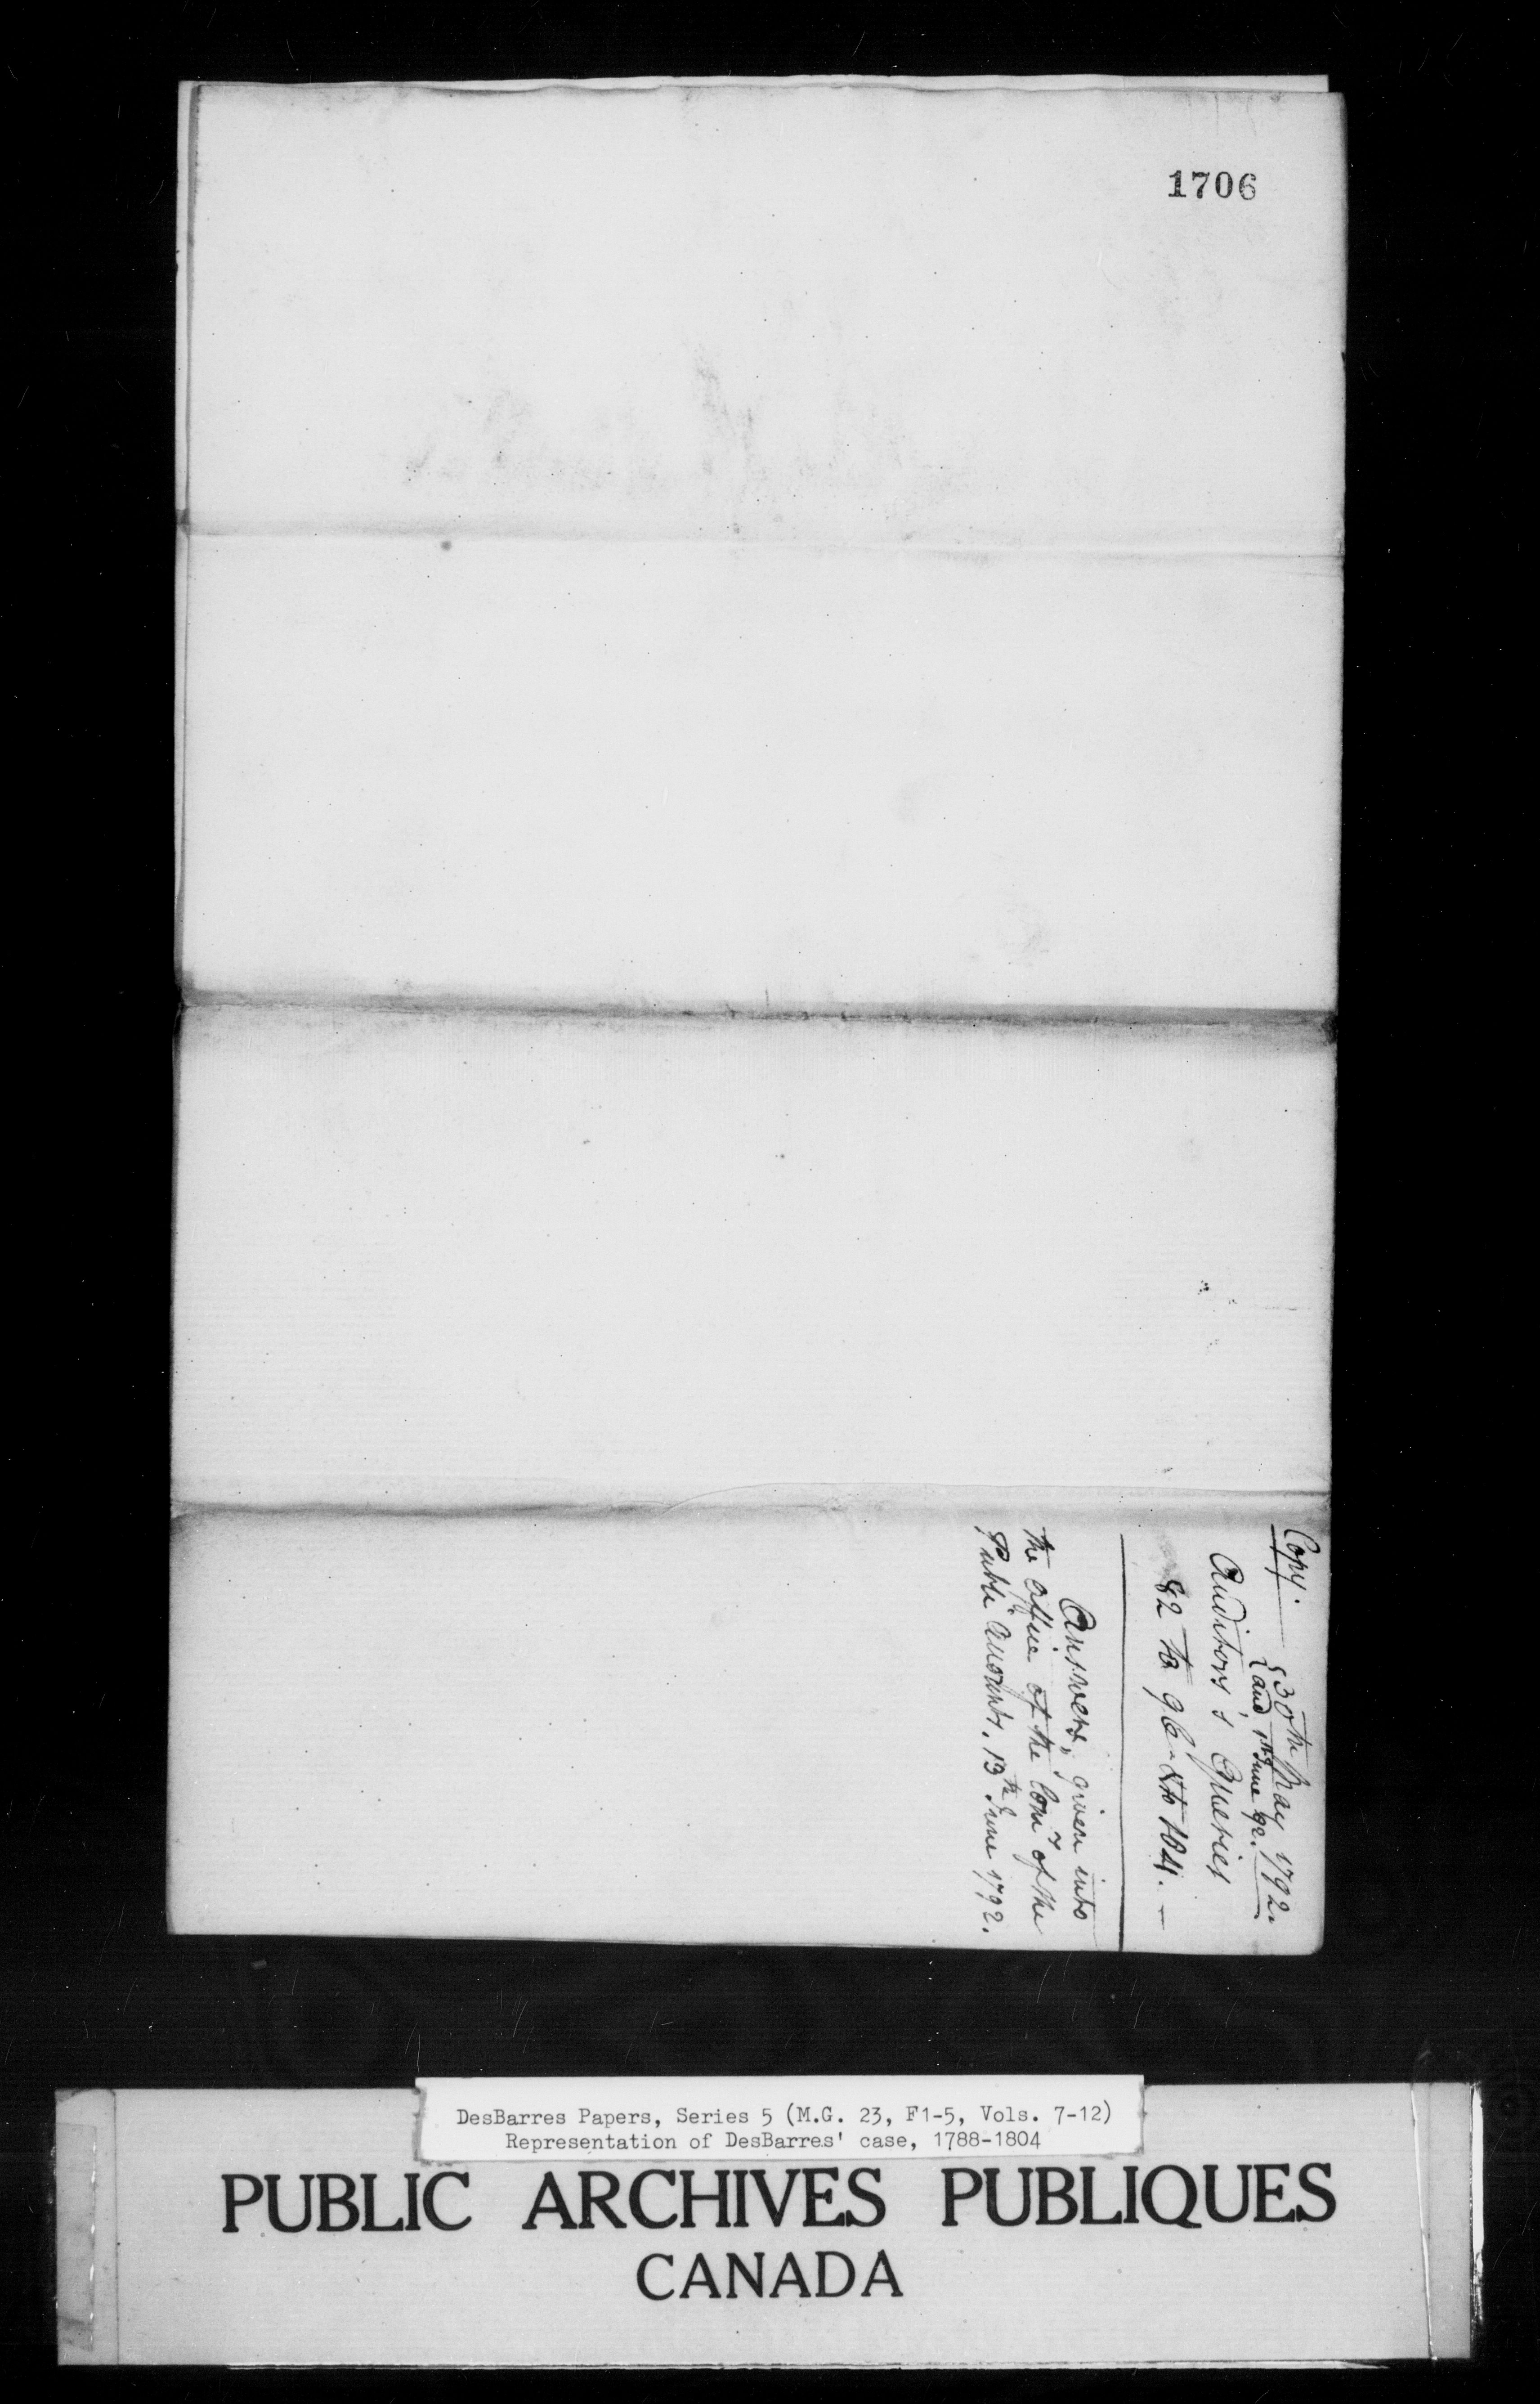 1706
Copy. 30th May 1792.
and 1st June 92.
Auditors's Queries
82 to 96 - & to 104. —
Answers, given into
the Office of the Comrs of the
Public Accounts. 13th June 1792.
DesBarres Papers, Series 5 (M.G. 23, F1-5, Vols. 7-12)
Representation of DesBarres' case, 1788-1804
PUBLIC ARCHIVES PUBLIQUES
CANADA